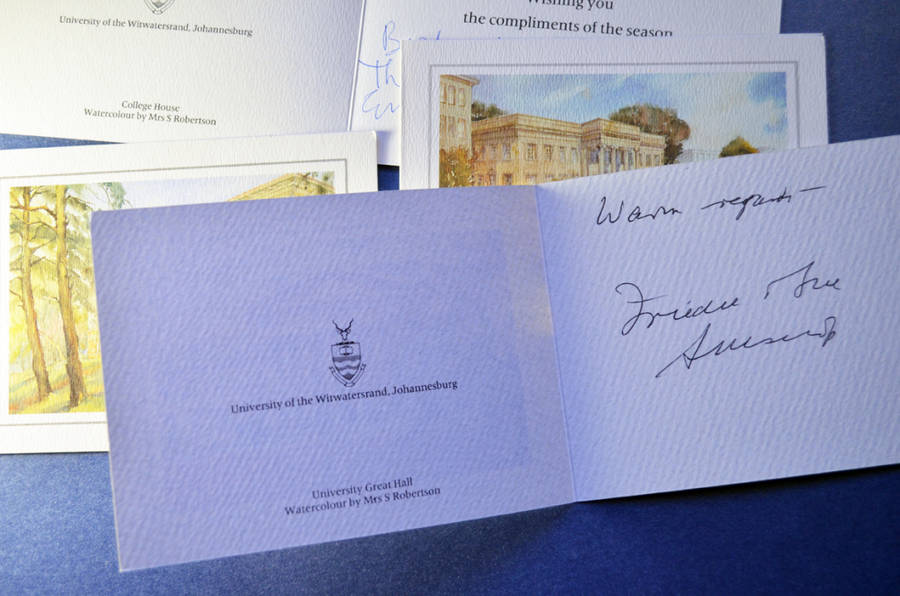 University of the Witwatersrand, Johannesburg
College House
Watercolour by Mrs S Robertson
Wishing you
the compliments of the season
University of the Witwatersrand, Johannesburg
University Great Hall
Watercolour by Mrs S Robertson
Warm regards